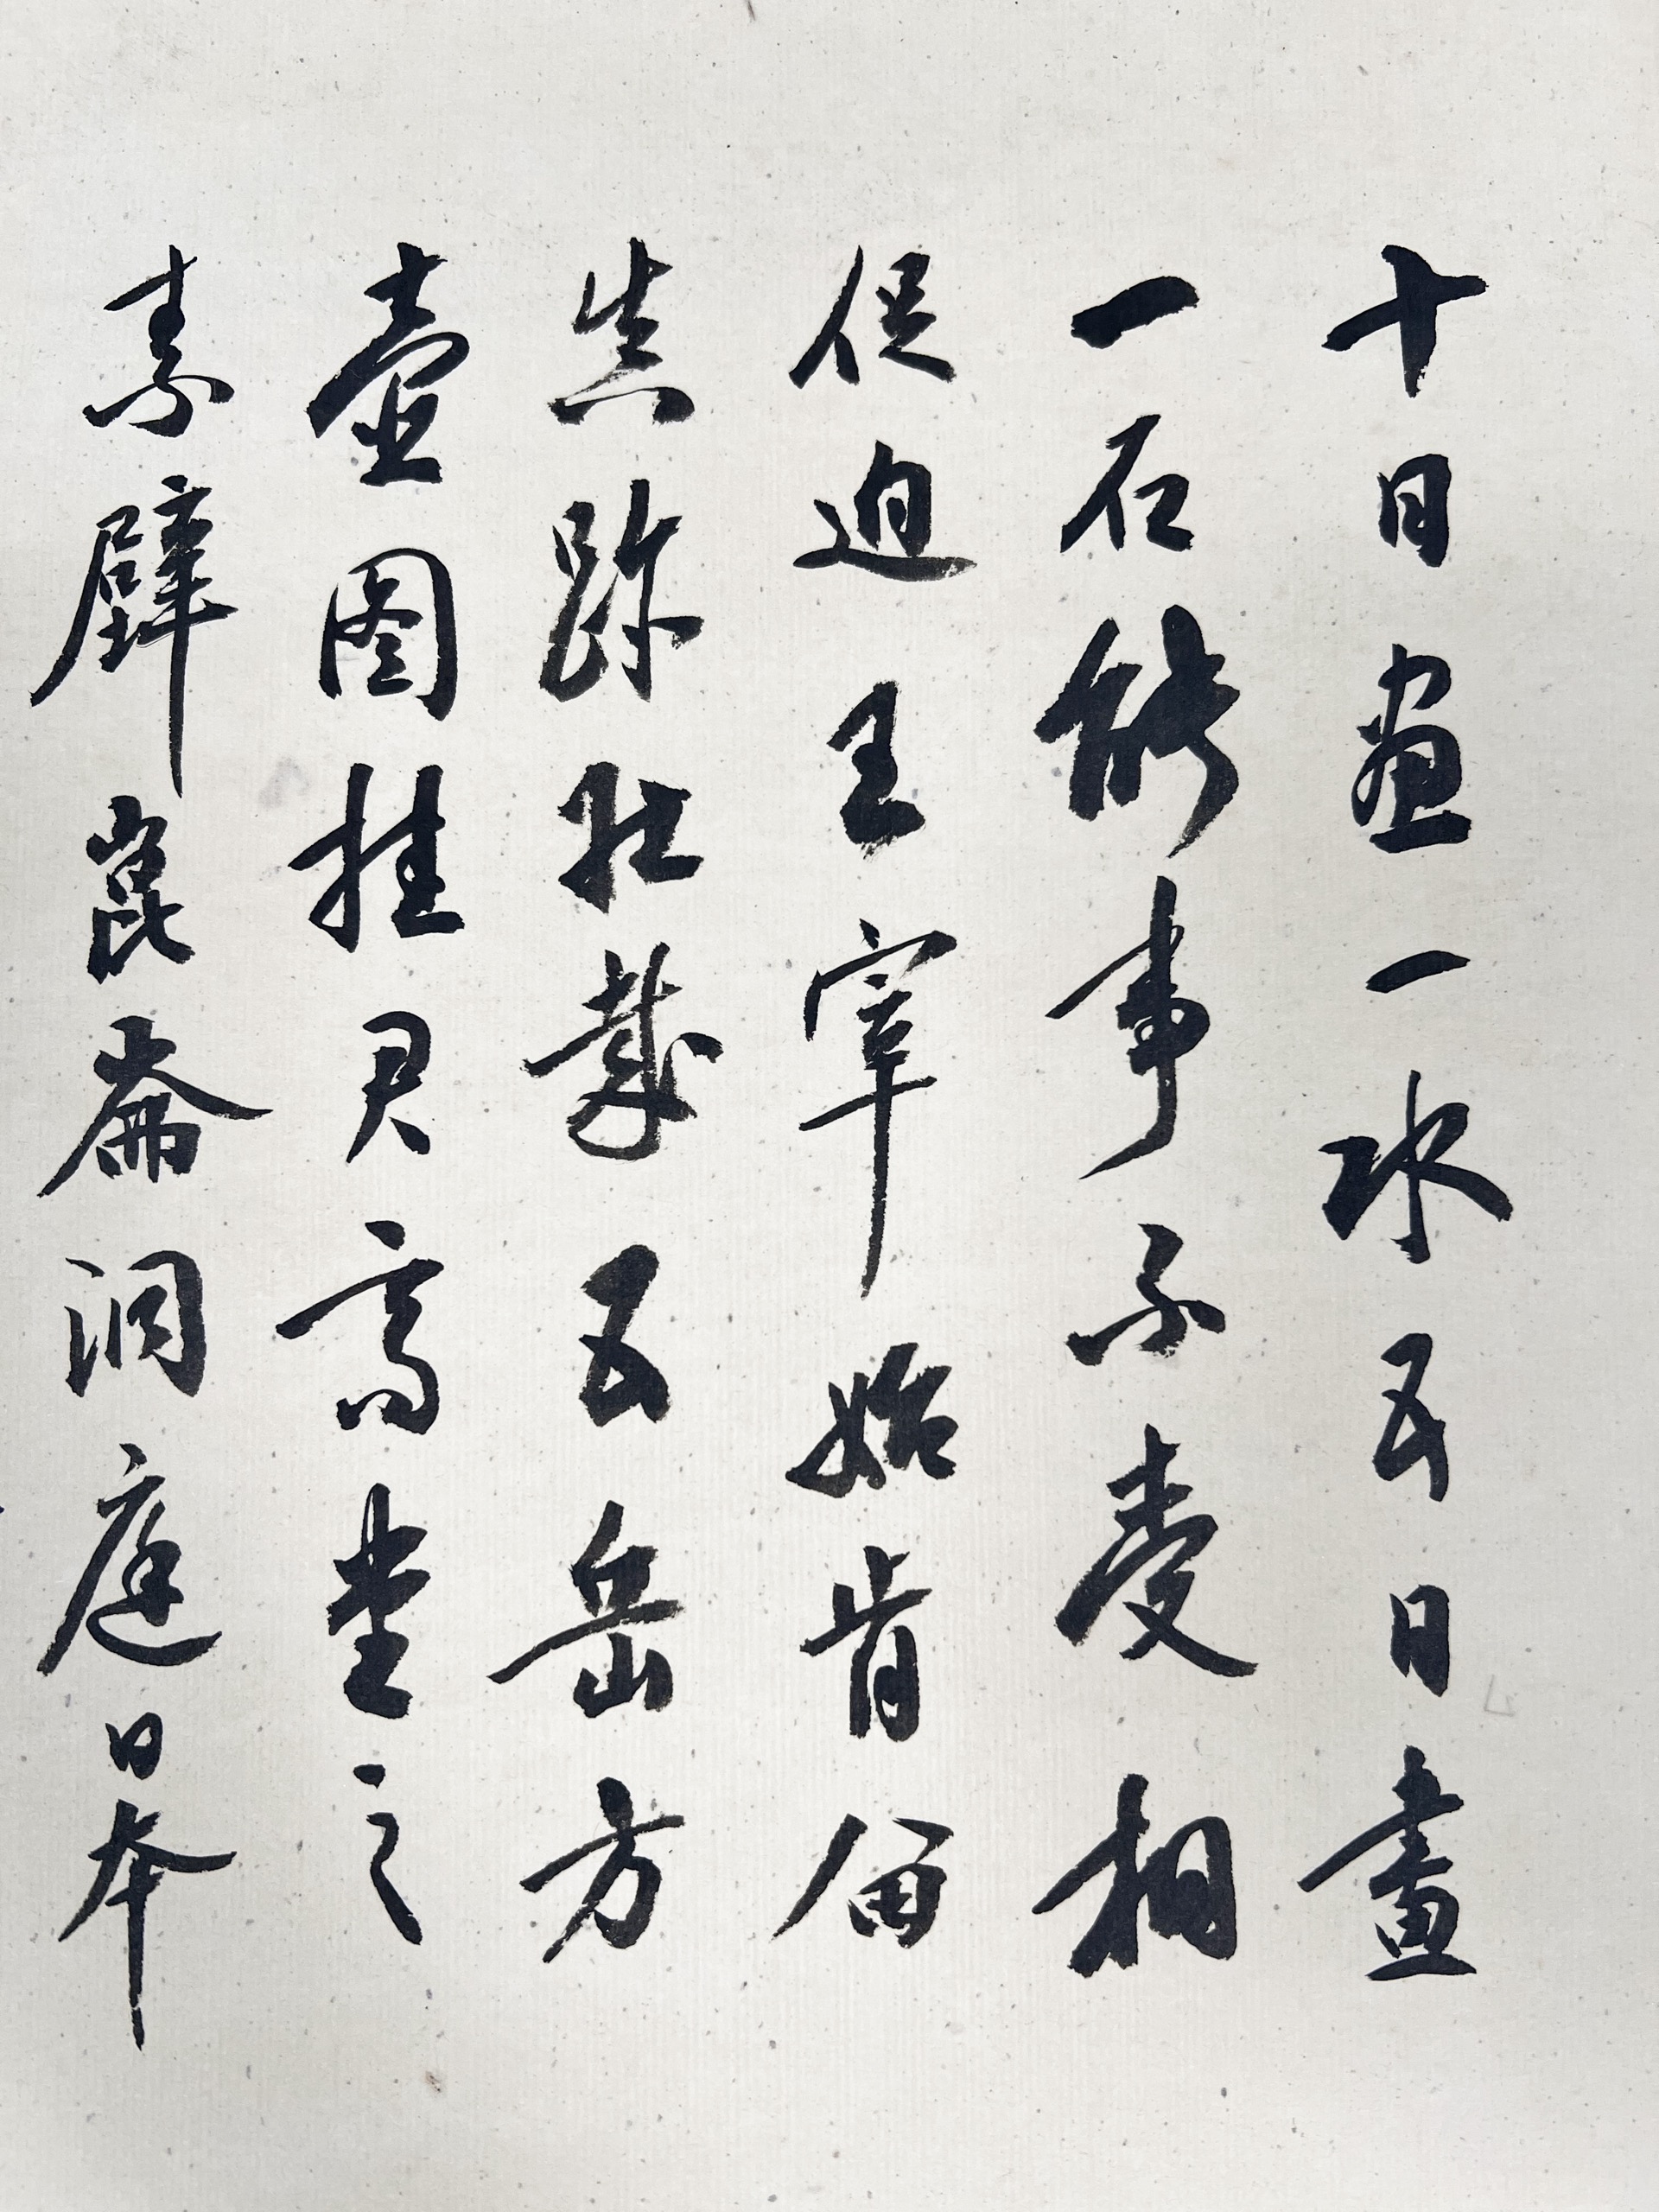 十日畫一水五日畫
一石能事不受相
促迫王宰始肯留
真跡壯哉五岳方
壺图挂君高堂之
素壁崑崙洞庭日本